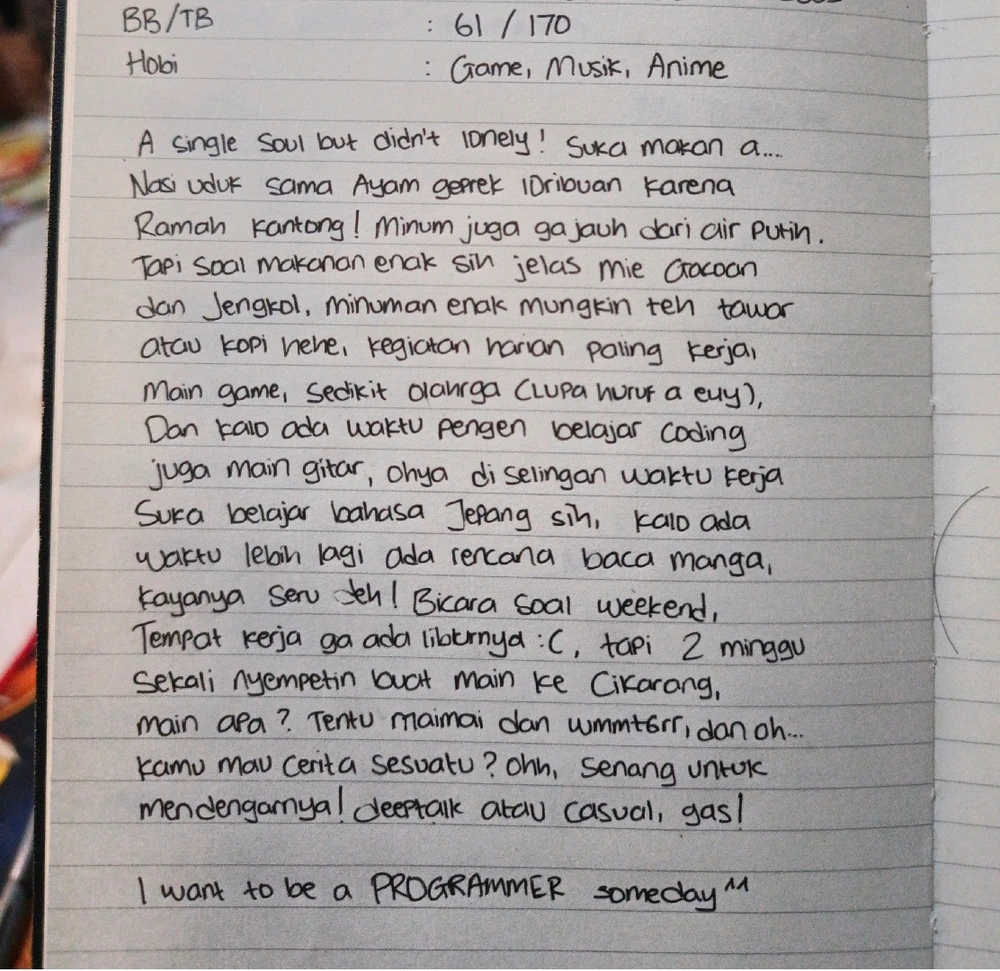 BB/TB : 61 / 170
Hobi : Game, Musik, Anime
A single soul but didn't lonely! Suka makan a...
Nasi uduk sama Ayam geprek 10ribuan karena
Ramah kantong! Minum juga ga jauh dari air putih.
Tapi soal makanan enak sih jelas mie Gacoan
dan Jengkol, minuman enak mungkin teh tawar
atau kopi hehe, kegiatan harian paling kerja,
Main game, sedikit olahrga (Lupa huruf a euy),
Dan kalo ada waktu pengen belajar coding
juga main gitar, ohya di selingan waktu kerja
Suka belajar bahasa Jepang sih, kalo ada
waktu lebih lagi ada rencana baca manga,
kayanya seru deh! Bicara soal weekend,
Tempat kerja ga ada liburnya :C, tapi 2 minggu
Sekali nyempetin buat main ke Cikarang,
main apa? Tentu maimai dan wmmt6rr, dan oh...
kamu mau cerita sesuatu? Ohh, senang untuk
mendengarnya! deeptalk atau casual, gas!
I want to be a PROGRAMMER someday ^^